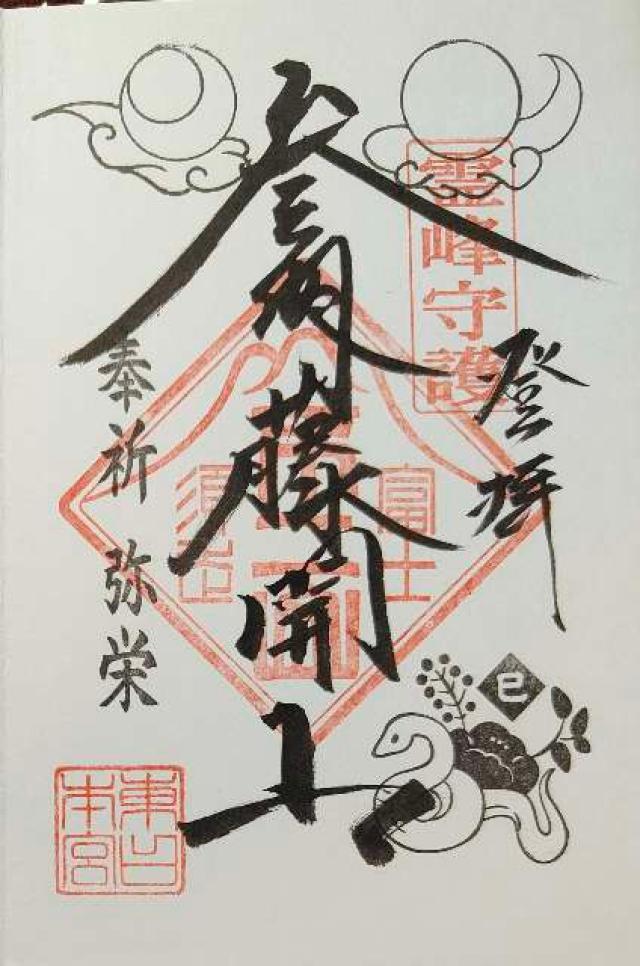 霊峰守護
登拝
參明藤開山
冨士
須走
奉祈 弥栄
東口
本宮
巳